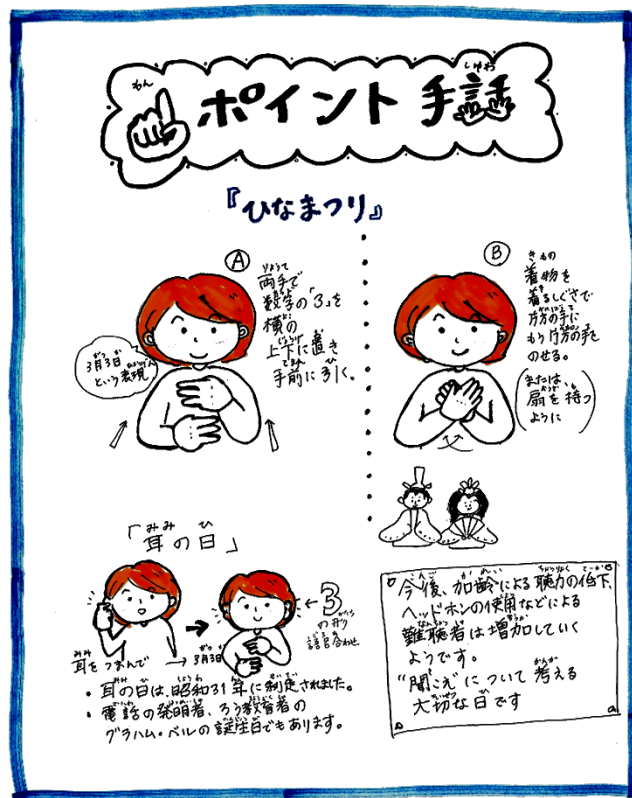 わん
ポイント手話
『ひなまつり』
A
両手で
数字の「3」を
横の
上下に置き
手前に引く。
3月3日
という表現
B
着物を
着るしぐさで
片方の手に
もう片方の手を
のせる。
(または、
扇を持つ
ように)
「耳の日」
耳をつまんで
→3月3日
←3
の形
語呂合わせ
・耳の日は、昭和31年に制定されました。
・電話の発明者、ろう教育者の
グラハム・ベルの誕生日でもあります。
今後、加齢による聴力の低下、
ヘッドホンの使用などによる
難聴者は増加していく
ようです。
“聞こえ”について考える
大切な日です